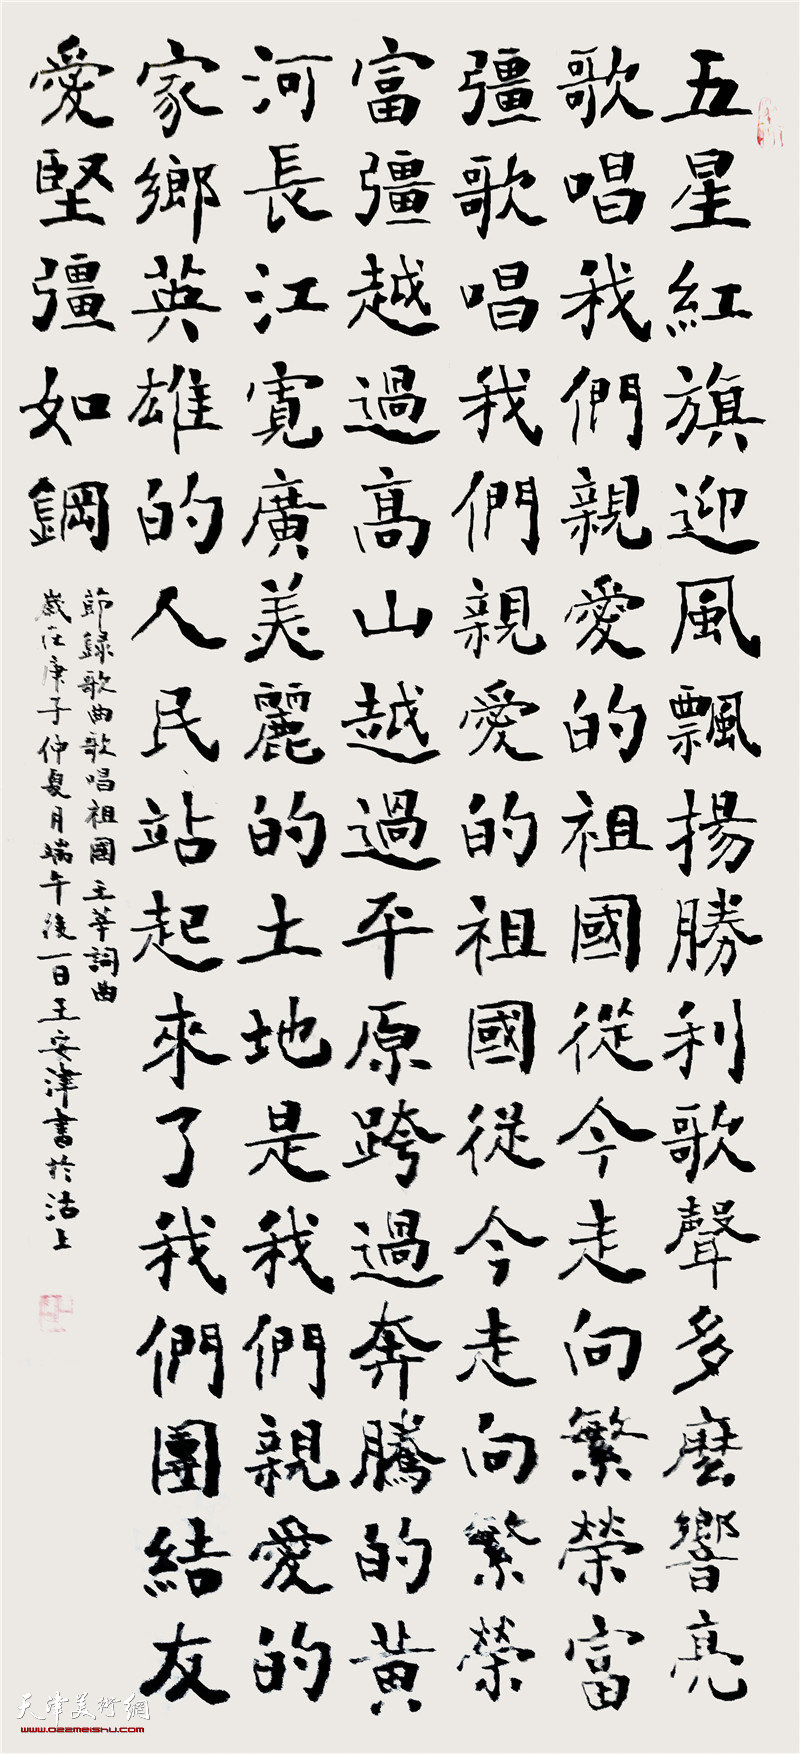 五星紅旗迎風飄揚勝利歌聲多麼響亮
歌唱我們親愛的祖國從今走向繁榮富
彊歌唱我們親愛的祖國從今走向繁榮
富彊越過髙山越過平原跨過奔騰的黄
河長江寬廣美麗的土地是我們親愛的
家鄉英雄的人民站起來了我們團結友
愛堅彊如鋼
節録歌曲歌唱祖國 王莘詞曲
歲在庚子仲夏月端午後一日王安津書於沽上
天津美術網
www.022meishu.com